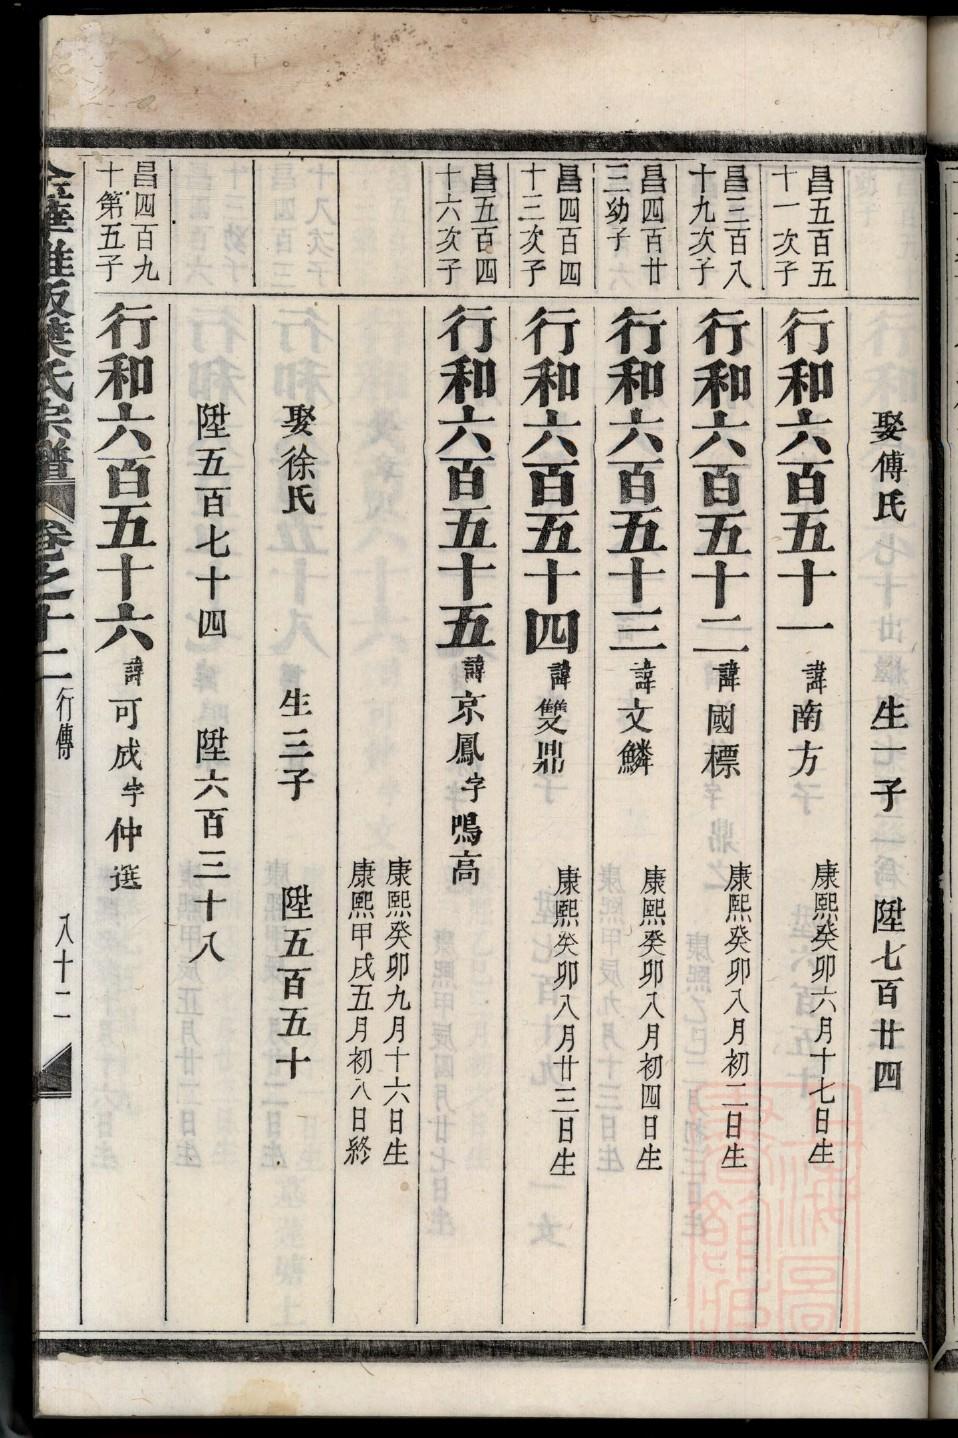 娶傅氏　生一子　陞七百廿四
昌五百五十一次子
行和六百五十一 諱南方 康熙癸卯六月十七日生
昌三百八十九次子
行和六百五十二 諱國標 康熙癸卯八月初二日生
昌四百廿三幼子
行和六百五十三 諱文鱗 康熙癸卯八月初四日生
昌四百四十三次子
行和六百五十四 諱雙鼎 康熙癸卯八月廿三日生
昌五百四十六次子
行和六百五十五 諱京鳳 字鳴高
康熙癸卯九月十六日生
康熙甲戌五月初八日終
娶徐氏　生三子　陞五百五十
陞五百七十四　陞六百三十八
昌四百九十第五子
行和六百五十六 諱可成 字仲選
葉氏宗譜 卷之十二 行傳 八十二